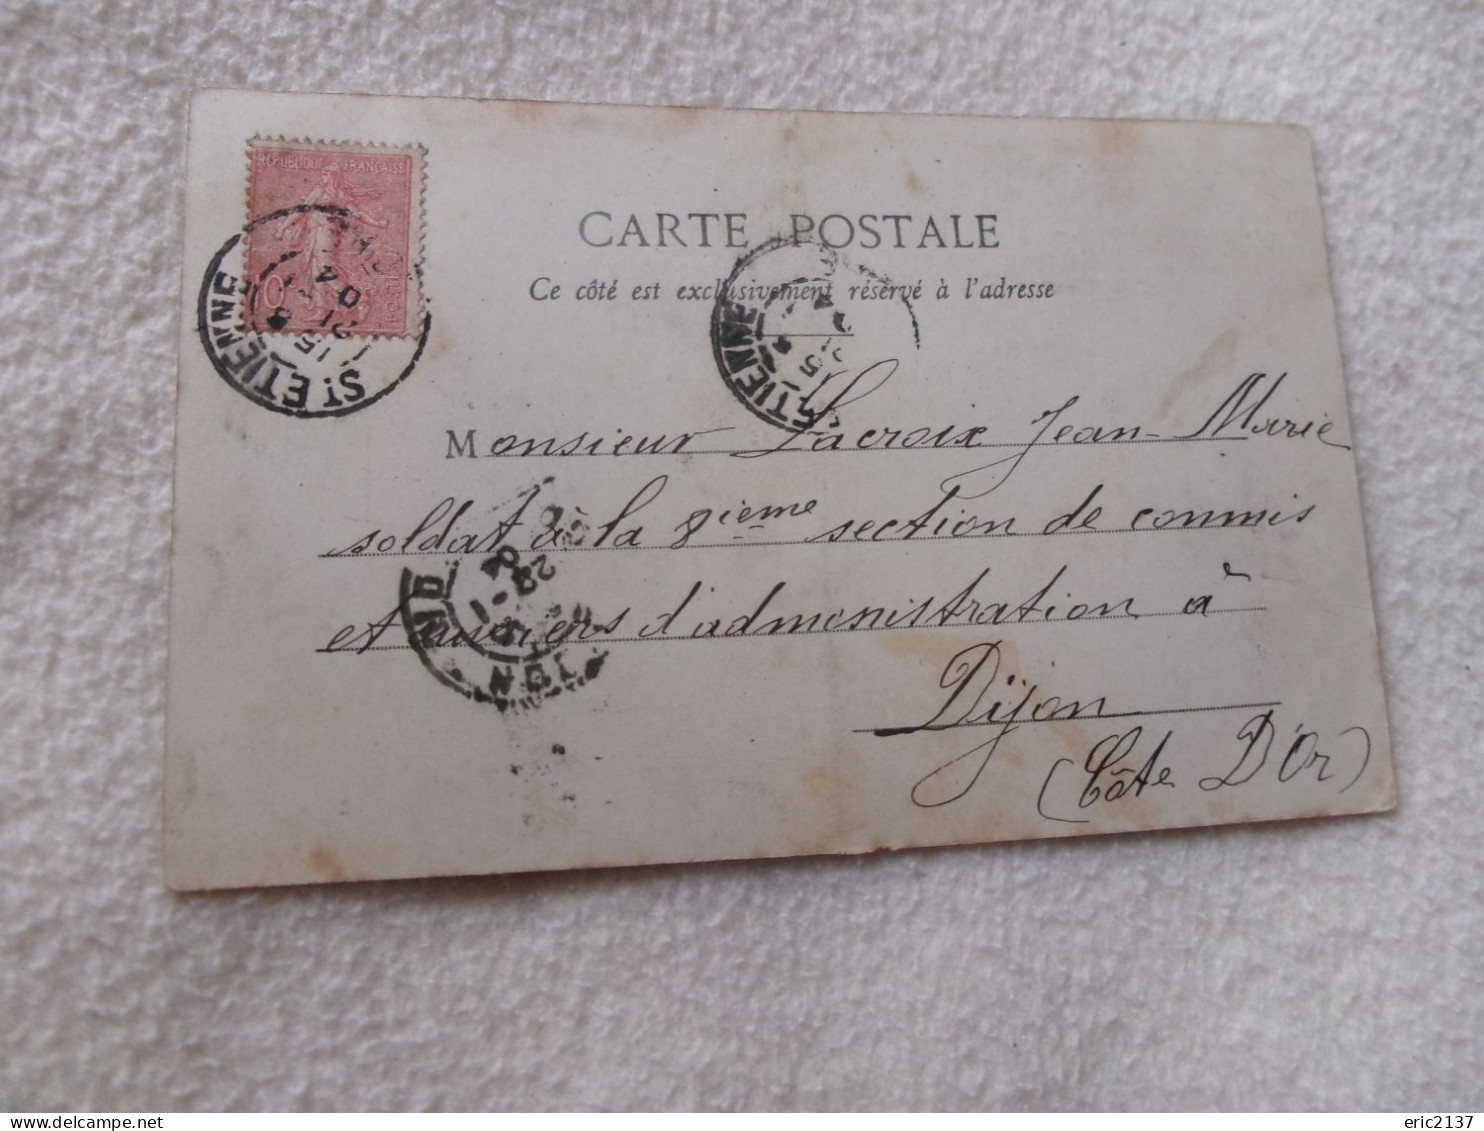 REPUBLIQUE FRANÇAISE
10
ST ETIENNE
15
21
04
CARTE POSTALE
Ce côté est exclusivement réservé à l'adresse
ETIENNE
15
Monsieur Lacroix Jean-Marie
soldat à la 8ieme section de commis
et ouvriers d'administration à
Dijon
(Côte D'Or)
22-1
04
eric2137